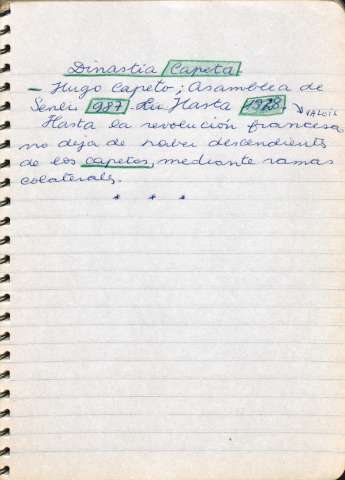 Dinastia Capeta.
- Hugo Capeto; Asamblea de
Senlí 987. Hasta 1928. VALOIS
Hasta la revolución francesa
no deja de haber descendientes
de los capetos, mediante ramas
colaterales.
* * *